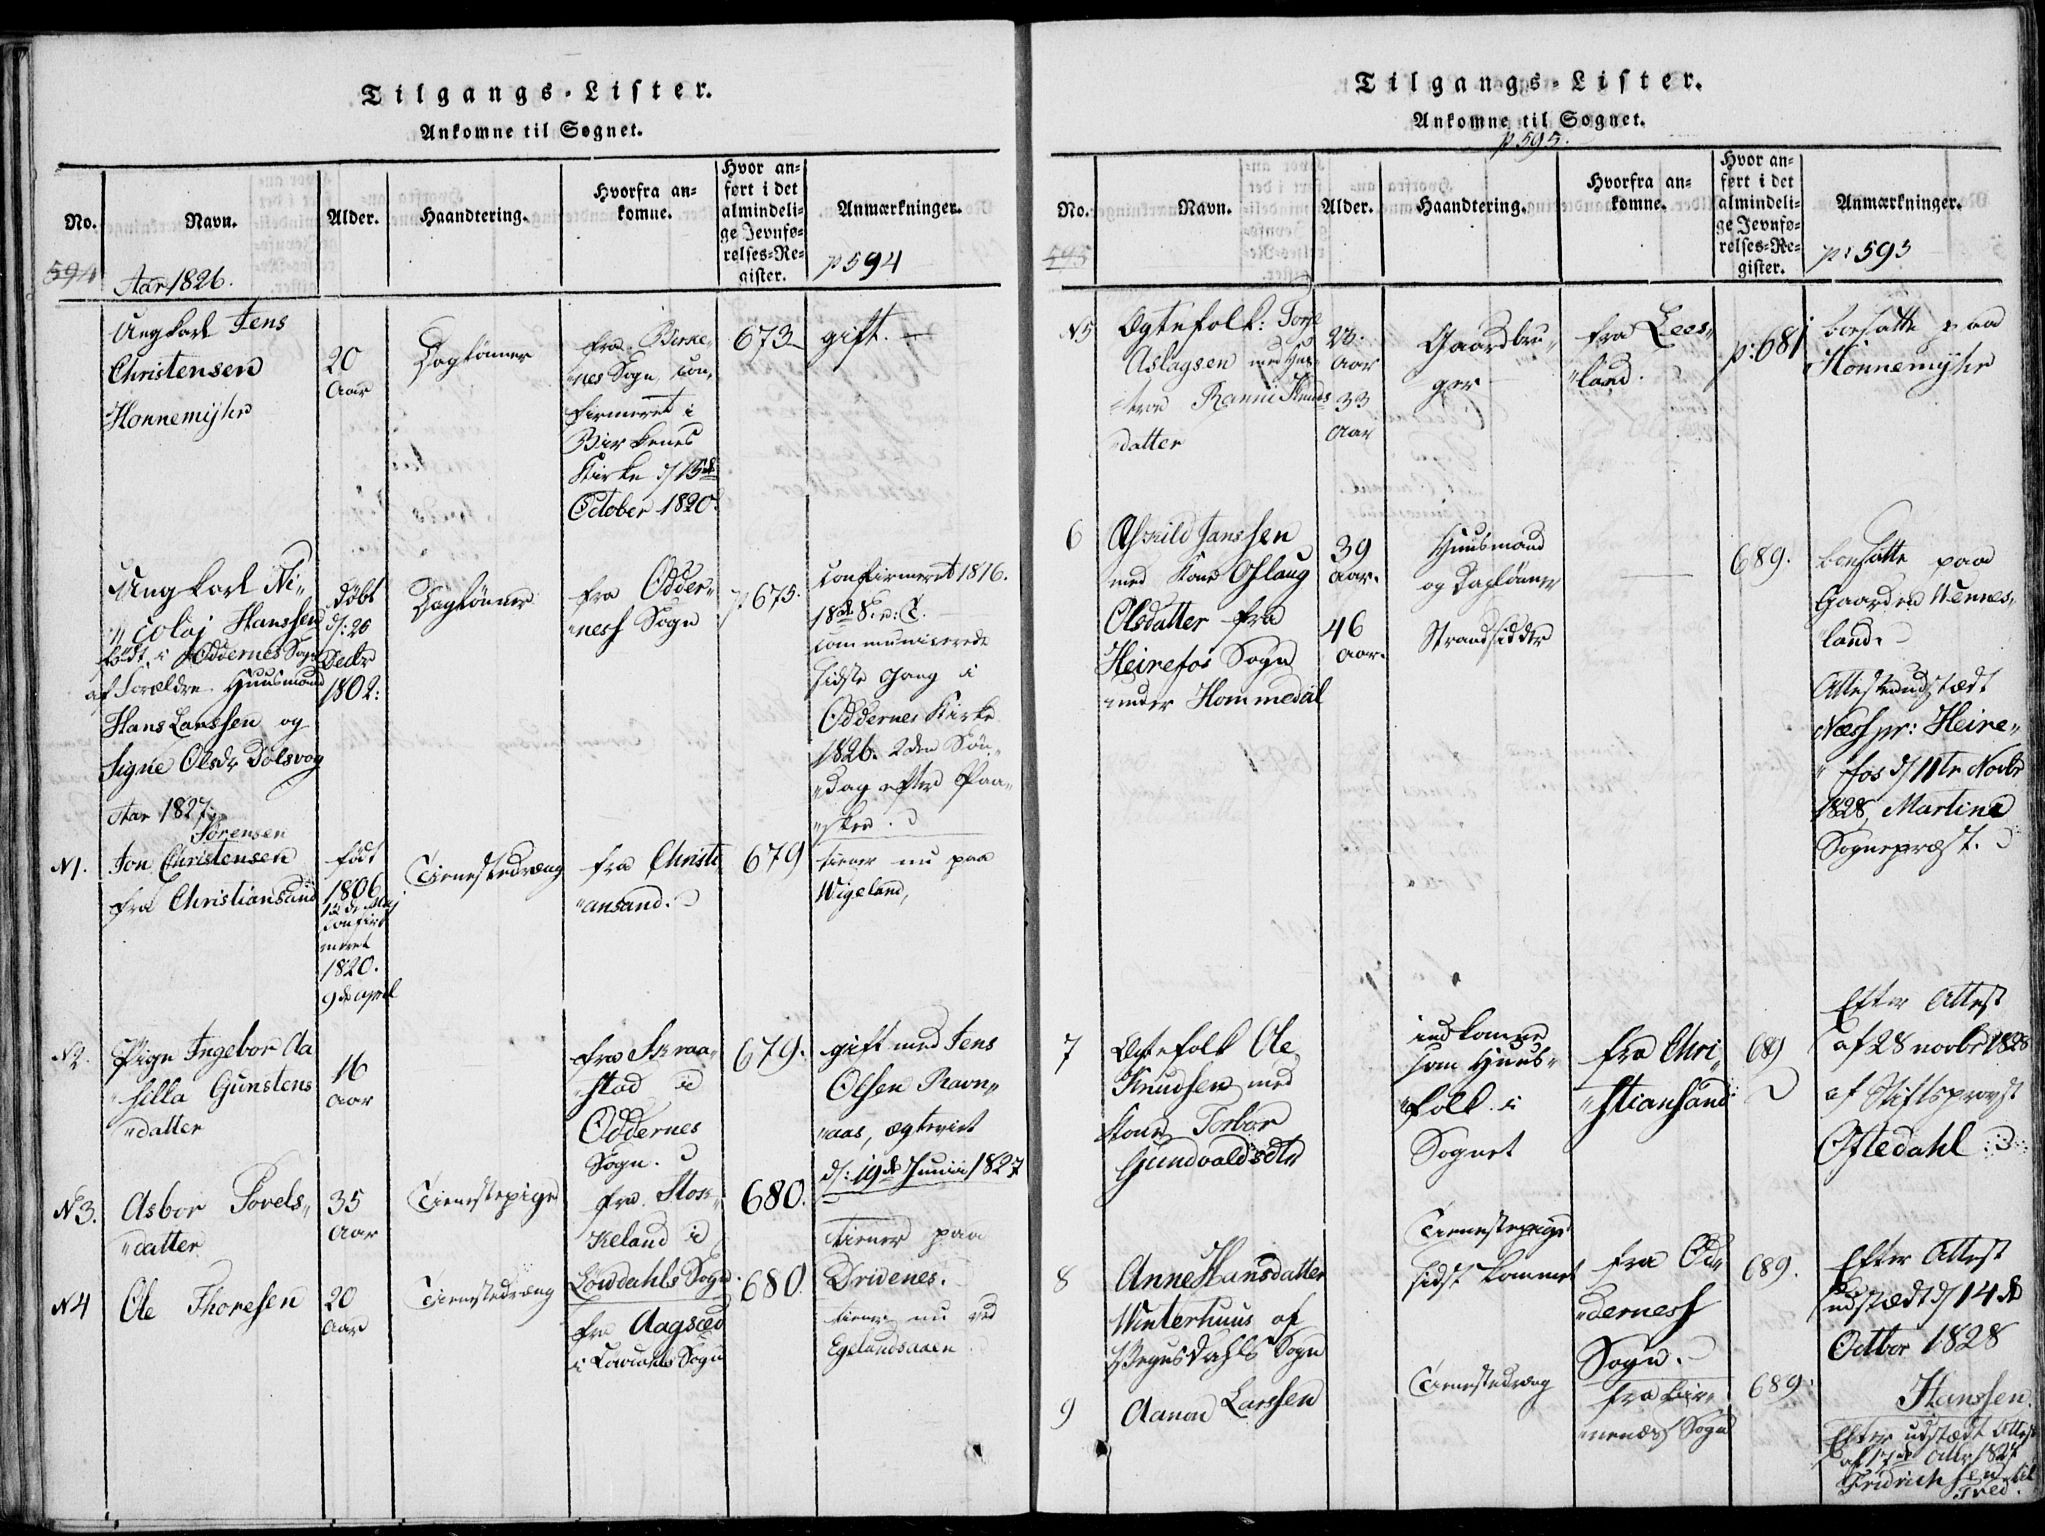 Tilgangs-Lister.
Ankomne til Sognet.
No.
Navn.
Alder.
Haandtering.
Hvorfra an-
komne.
Hvor an-
ført i det
almindeli-
ge Jevnfø-
relses-Re-
gister.
Anmærkninger.
594
Aar 1826.
p 594
Ungkarl Jens
Christensen
Honnemyhr
20
Aar
Daglönner
fra Birke-
nes Sogn, con-
firmeret i
Birkenes
Kirke d/15de
October 1820.
673
gift.
Ungkarl Ni-
colaj Hanssen
födt i Oddernes Sogn
af Forældre Huusmand
Hans Larssen og
Signe Olsdr Dolsvog
döbt
d: 26
Decbr
1802:
Daglönner
fra Odder-
ness Sogn
p 675.
confirmeret 1816.
18de S. e: T.
communicerede
sidste Gang i
Oddernes Kirke
1826. 2den Sön-
dag efter Paa-
ske.
Aar 1827.
N1.
Sörensen
Jon Christensen
fra Christiansand
födt
1806
12 de Maj
confir
meret
1820.
9 de April
Tienestedreng
fra Christi
ansand.
679
tiener nu paa
Wigeland,
N2.
Pige Ingebor Aa
silla Gunstens
datter
16
Aar
fra Skraa-
stad i
Oddernes
Sogn.
679.
gift med Jens
Olsen Ravn-
aas, ægteviet
d: 19de Junii 1827
N 3.
Asbor Povels-
datter
35
Aar
Tienestepige
fra Stok-
keland i
Löwdahls Sogn
680.
tiener paa
Dridenes.
N4
Ole Thoresen
20
Aar
Tienestedreng
fra Aagsæd
i Löwdals Sogn
680.
tiener nu ved
Egelandsaaen
Tilgangs-Lister.
Ankomne til Sognet.
p 595.
No.
Navn.
Alder.
Haandtering.
Hvorfra an-
komne.
Hvor an-
ført i det
almindeli-
ge Jevnfø-
relses-Re-
gister.
Anmærkninger.
595
p: 595
N5
Ægtefolk: Torje
Aslagsen med Hus-
troe Ranni Knuds
datter
28:
Aar
33
Aar
Gaardbru-
ger
fra Lees-
land.
p: 681
boesatte paa
Honnemyhr
6
Asskild Janssen
med Kone Oslaug
Olsdatter fra
Heirefos Sogn
under Hommedal
39
Aar.
46
Aar.
Huusmand
og Daglönner
Strandsidder
689.
boesatte paa
Gaarden Wennes-
land.
Attest udstædt
Næss pr: Heire-
fos d/11te Novbr
1828, Martine
Sognepræst.
7
Ægtefolk Ole
Knudsen med
Kone Torbor
Gundvaldsdtr
indkomne
som Huus-
folk i
Sognet
fra Chri-
stiansand
689
Efter Attest
af 28 novbr 1828
af Stiftsprovst
Oftedahl
8
Anne Hansdatter
Winterhuus af
Wegusdahls Sogn
Tienestepige
sidst kommet
fra Od-
derness
Sogn.
689.
Efter Attest
udstædt d/14de
Octbor 1828
Hanssen.
9
Aanon Larssen
Tienestedreng
fra Bir-
kenæs Sogn
689.
Efter udstædt Attest
Fridrichsen til
Tved.